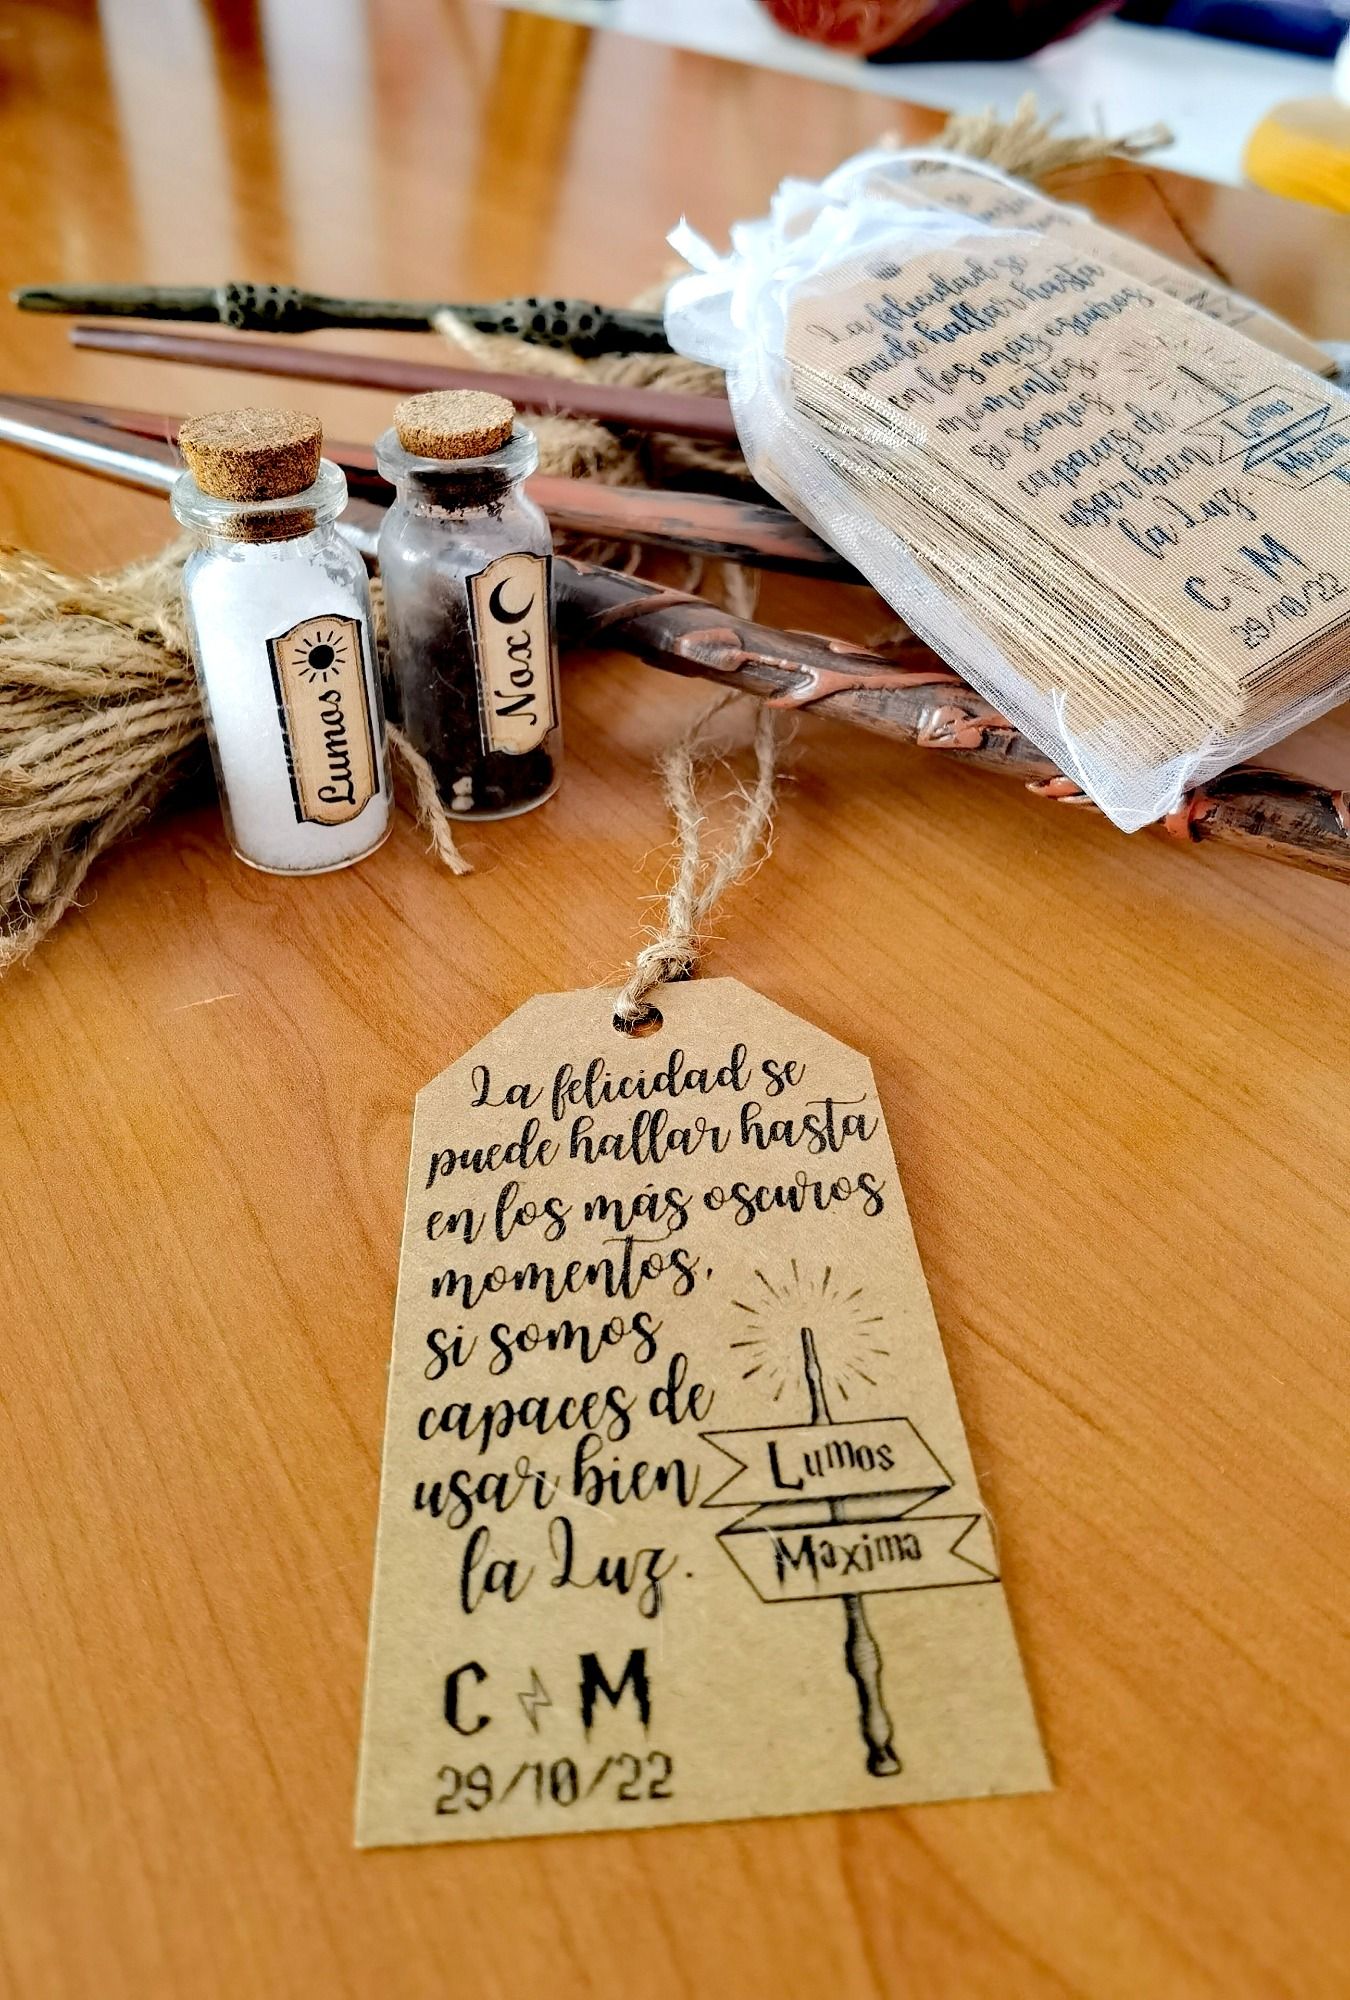 Lumos
Nox
La felicidad se
puede hallar hasta
en los más oscuros
momentos
si somos
capaces de
usar bien
la Luz.
Lumos
Maxima
C M
29/10/22
La felicidad se
puede hallar hasta
en los más oscuros
momentos,
si somos
capaces de
usar bien
la Luz.
Lumos
Maxima
C M
29/10/22